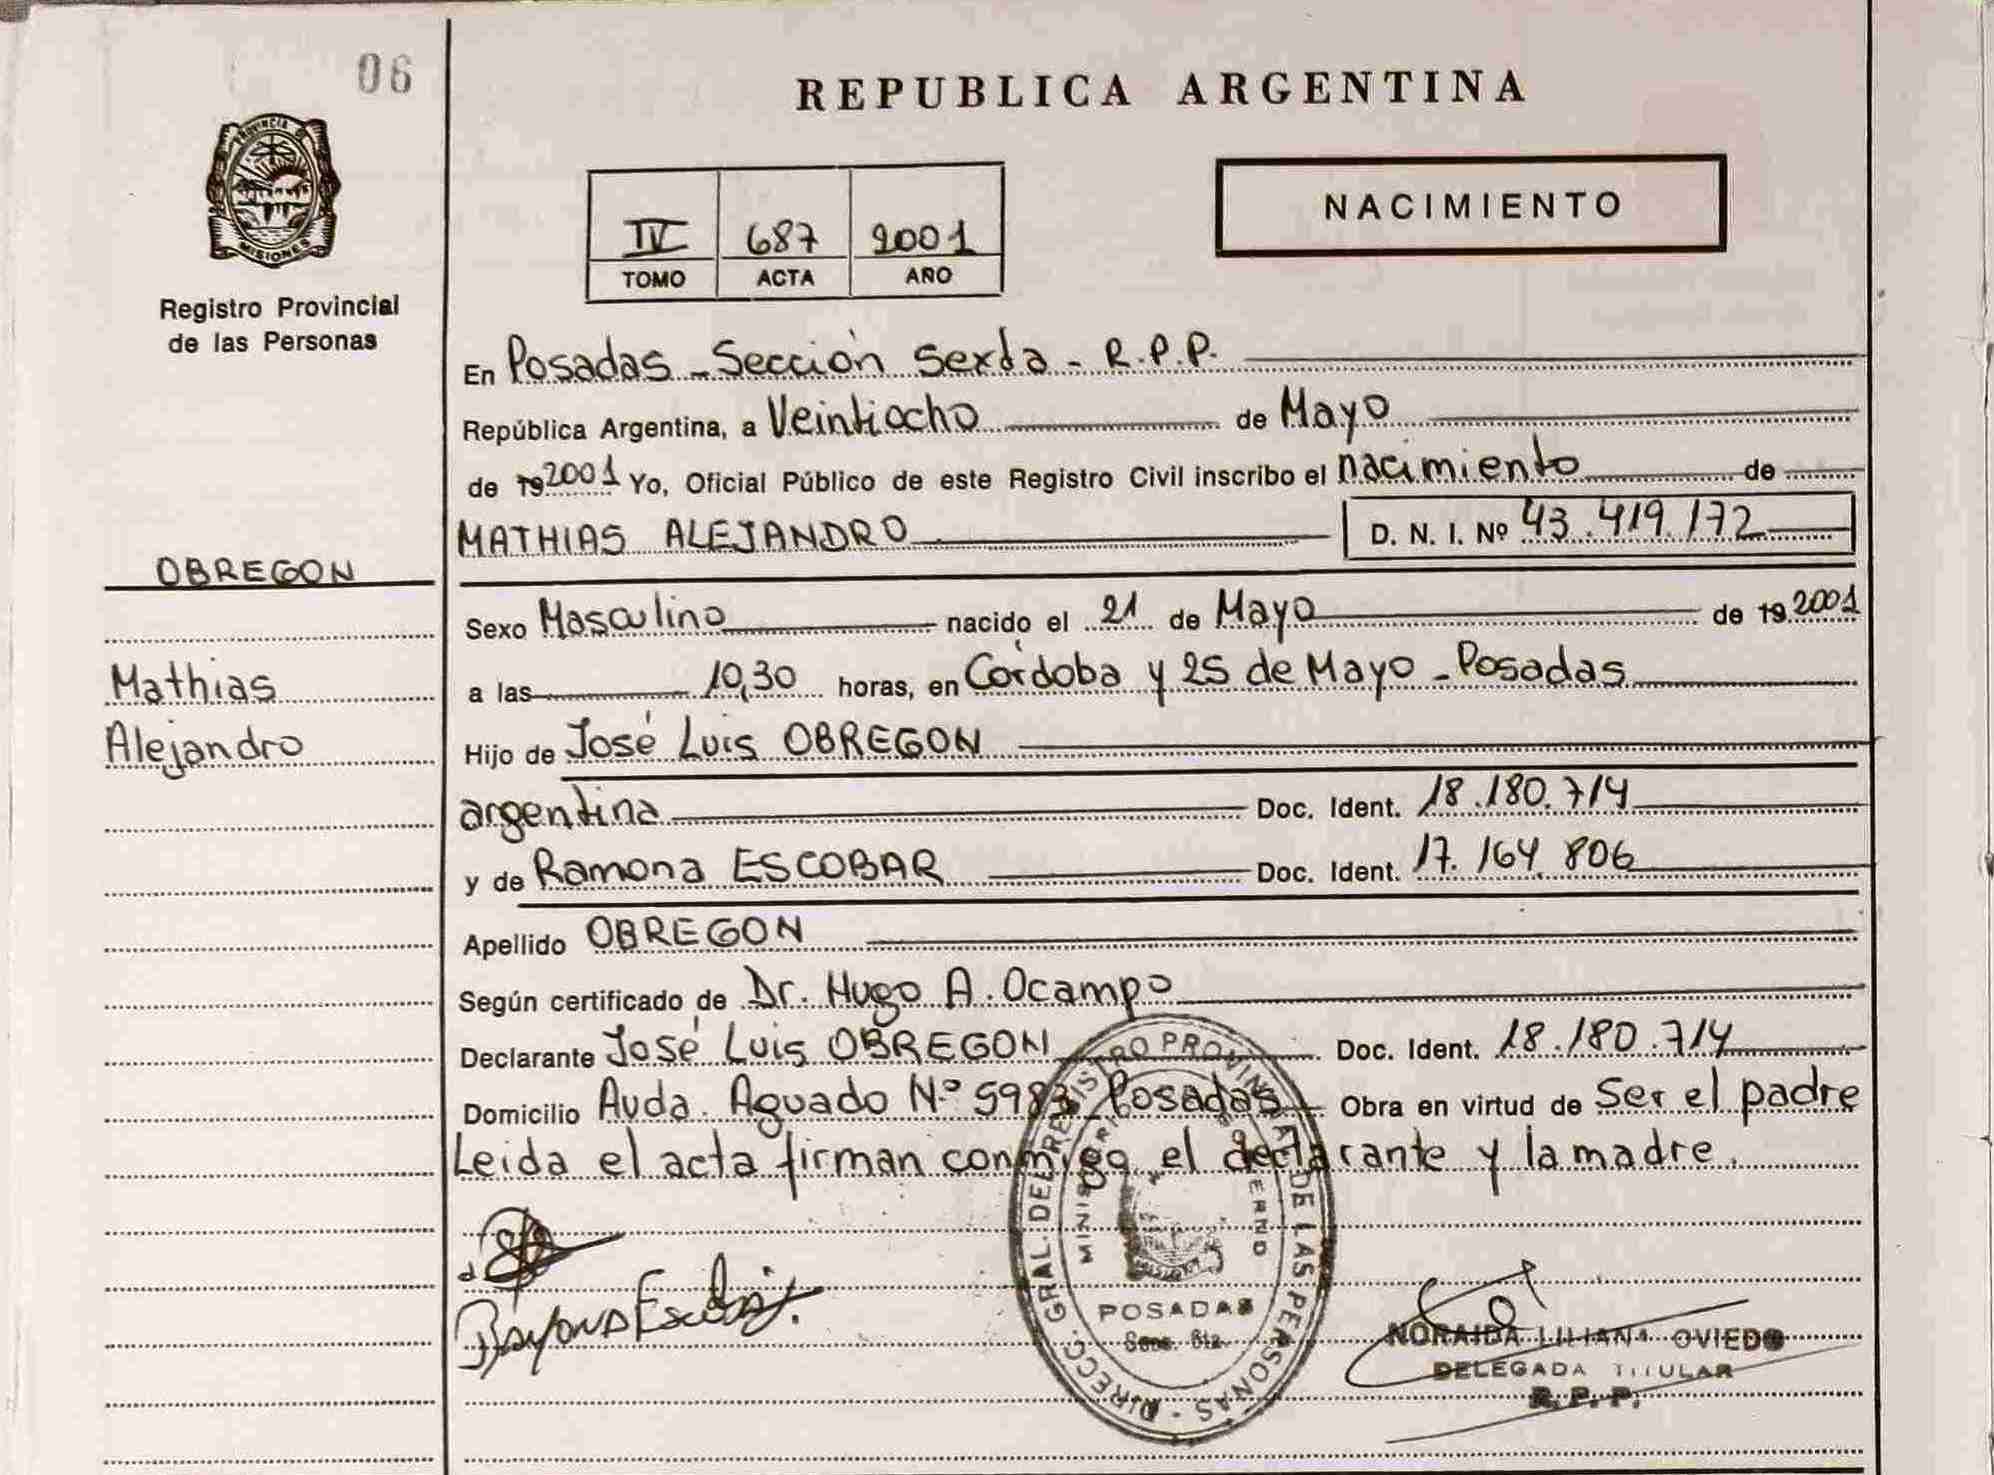 06
REPUBLICA ARGENTINA
PROVINCIA DE
MISIONES
Registro Provincial
de las Personas
IV 687 2001
TOMO ACTA AÑO
NACIMIENTO
En Posadas - Sección Sexta - R.P.P.
República Argentina, a Veintiocho de Mayo
de 19 2001 Yo, Oficial Público de este Registro Civil inscribo el nacimiento de
MATHIAS ALEJANDRO D. N. I. Nº 43.419.172
OBREGON
Sexo Masculino nacido el 21 de Mayo de 19 2001
Mathias
a las 10,30 horas, en Córdoba y 25 de Mayo - Posadas
Alejandro
Hijo de José Luis OBREGON
argentina Doc. Ident. 18.180.714
y de Ramona ESCOBAR Doc. Ident. 17.164.806
Apellido OBREGON
Según certificado de Dr. Hugo A. Ocampo
Declarante José Luis OBREGON Doc. Ident. 18.180.714
Domicilio Avda. Aguado Nº 5983 Posadas Obra en virtud de Ser el padre
Leida el acta firman conmigo el declarante y la madre.
DIRECC. GRAL. DEL REGISTRO PROVINCIAL DE LAS PERSONAS
MINISTERIO GOBIERNO
POSADAS
Secc. 6ta.
Ramona Escobar
NORAIDA LILIANA OVIEDO
DELEGADA TITULAR
R.P.P.